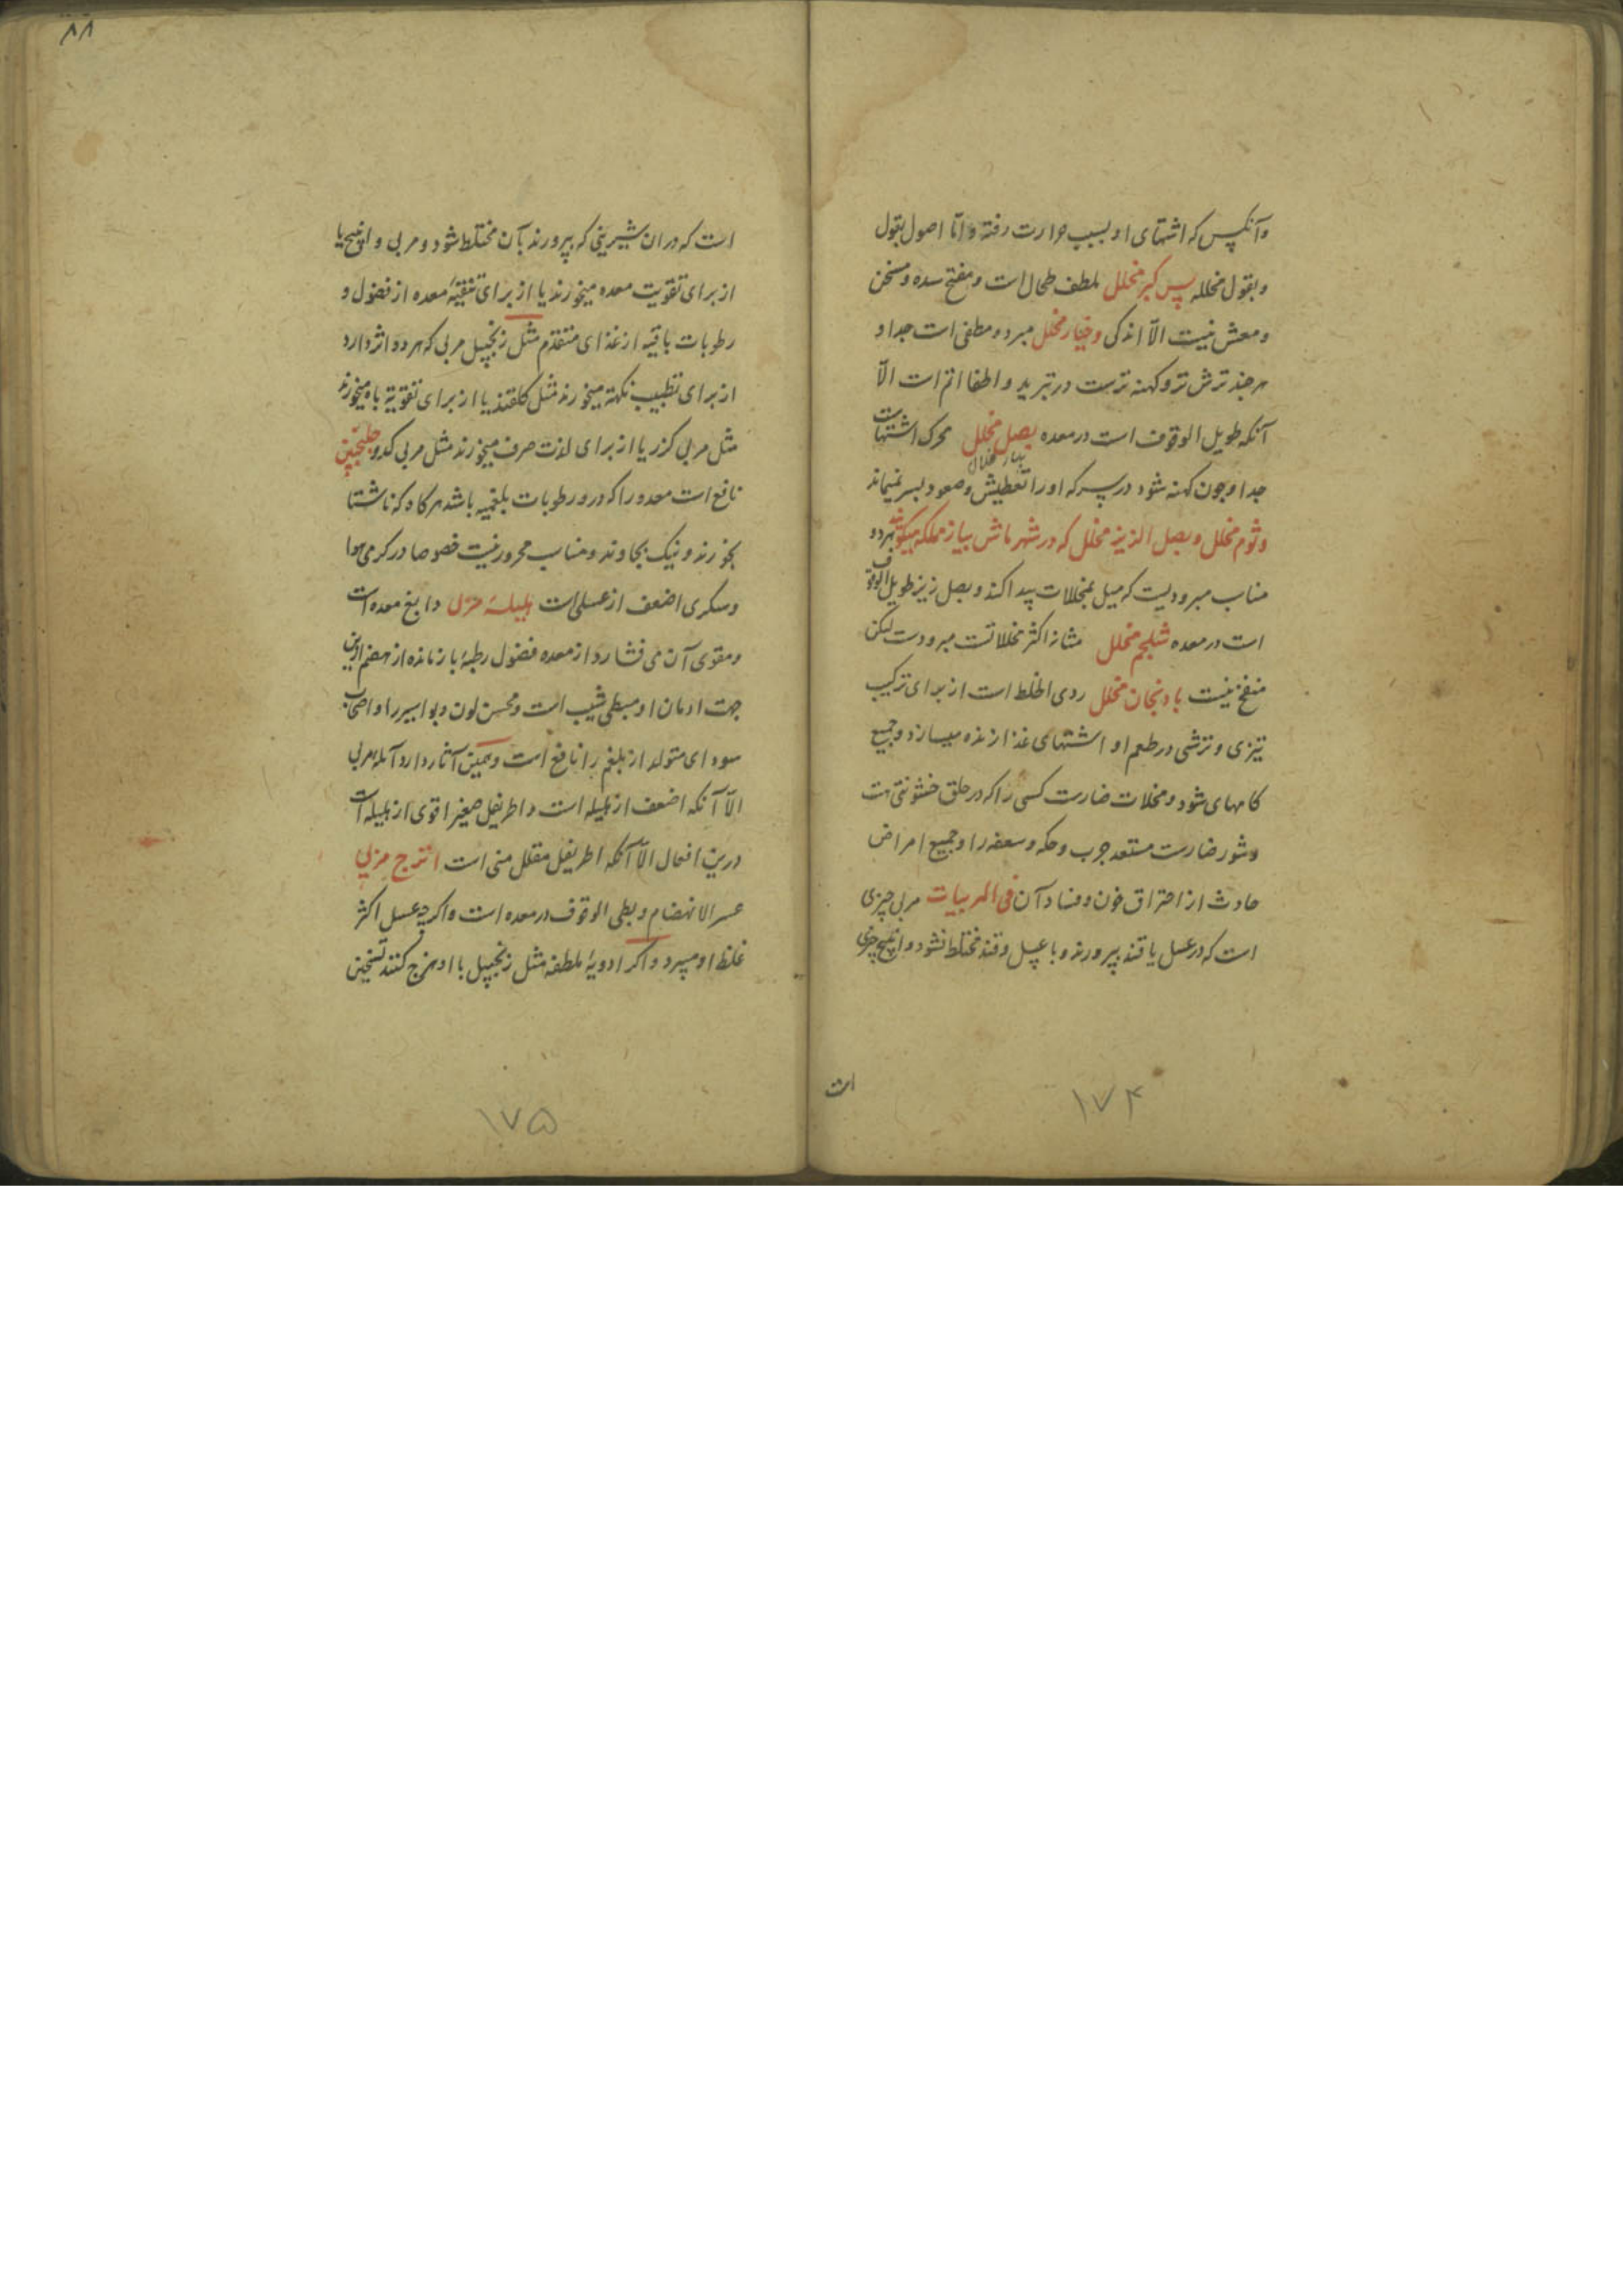 وآنکس که اشتهای او بسبب حرارت رفته و اما اصول بقول
وبقول مخلله پس کبر مخلل ملطف طحال است ومفتح سده ومسخن
ومعطش نیست الّا اندکی وخیار مخلل مبرد ومطفی است جدا و
هرچند ترش تر وکهنه ترست در تبرید واطفا اتم است الّا
آنکه طویل الوقوف است در معده بصل مخلل محرک اشتهاست
جدا وچون کهنه شود در سرکه اورا تعطیش وصعود بسر نمیماند
وثوم مخلل وبصل الزیز مخلل که در شهر ماش پیاز مملکه میکویند هردو
مناسب مبرودیست که میل بمخللات پیدا کند وبصل زیز طویل الوقوف
است در معده شلجم مخلل مثانه اکثر مخللاتست مبرودست لیکن
منفخ نیست بادنجان مخلل ردی الخلط است از برای ترکیب
تیزی وترشی در طعم او اشتهای غذا زنده میسازد وجمیع
کامهای شود ومخللات ضارست کسی را که در حلق خشونتی هست
وشور ضارست مستعد جرب وحکه وسعفه را وجمیع امراض
حادث از احتراق خون وفساد آن فی المربیات مربی چیزی
است که در عسل یا قند بپرورند وبا عسل وقند مختلط نشود وانبیج چیزی
است
۱۷۴
۸۸
است که در ان شیرینی که بپرورند بآن مختلط شود ومربی وانبیج یا
از برای تقویت معده میخورند یا از برای تنقیهٔ معده از فضول و
رطوبات باقیه از غذای متقدم مثل زنجبیل مربی که هر دو اثر دارد
از برای تطییب نکهة میخورند مثل کلقند یا از برای تقویة باه میخورند
مثل مربی کزر یا از برای لذت صرف میخورند مثل مربی کدو جلنجبین
نافع است معده را که درو رطوبات بلغمیه باشد هرکاه که ناشتا
بخورند ونیک بجاوند ومناسب محرور نیست خصوصا در کرمی هوا
وسکری اضعف از عسلی است هلیلهٔ مربی دابغ معده است
ومقوی آن می فشارد از معده فضول رطبهٔ باز مانده از هضم ازین
جهت ادمان او مبطی شیب است ومحسن لون وبواسیر را واصحاب
سودای متولد از بلغم را نافع است وهمین آثار دارد آملهٔ مربی
الّا آنکه اضعف از هلیله است واطریفل صغیر اقوی از هلیله است
درین افعال الّا آنکه اطریفل مقلل منی است اترج مربی
عسر الانهضام وبطی الوقوف در معده است واکرچه عسل اکثر
غلظ او میبرد واکر ادویهٔ ملطفه مثل زنجبیل با او مزج کنند تسخین
۱۷۵